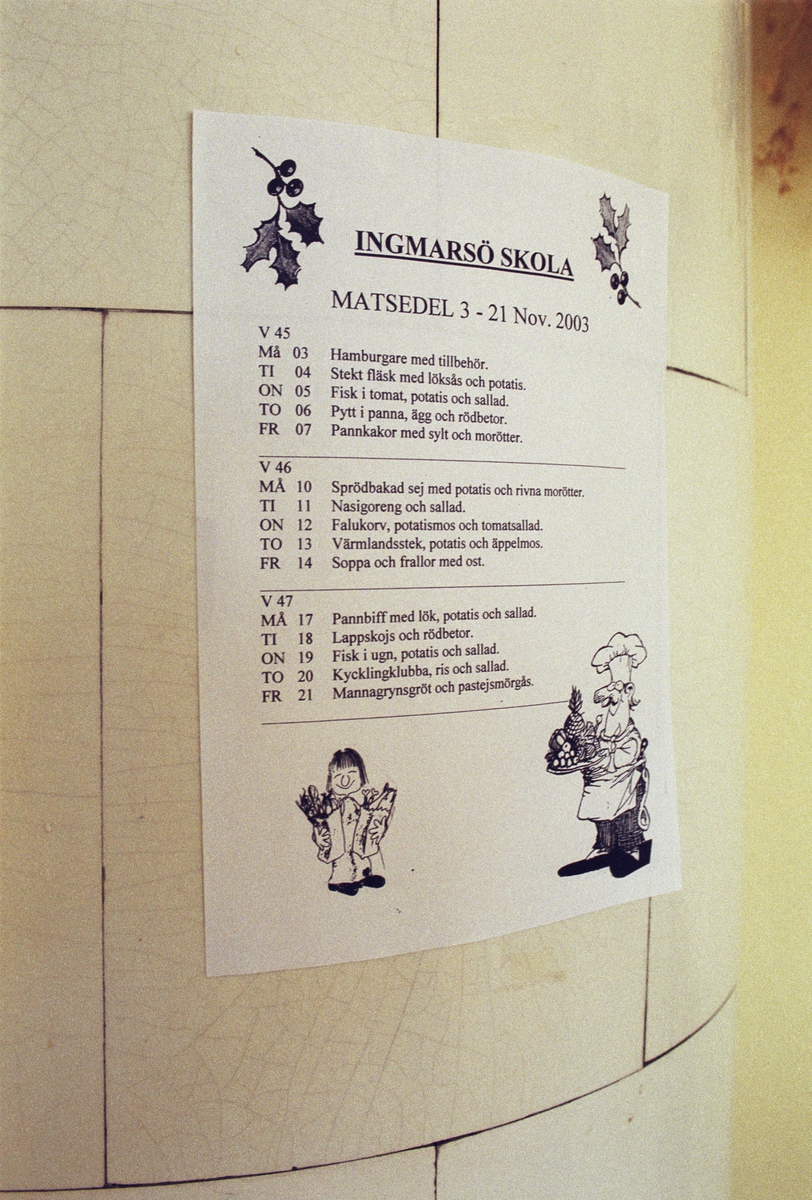 INGMARSÖ SKOLA
MATSEDEL 3 - 21 Nov. 2003
V 45
Må 03 Hamburgare med tillbehör.
TI 04 Stekt fläsk med löksås och potatis.
ON 05 Fisk i tomat, potatis och sallad.
TO 06 Pytt i panna, ägg och rödbetor.
FR 07 Pannkakor med sylt och morötter.
V 46
MÅ 10 Sprödbakad sej med potatis och rivna morötter.
TI 11 Nasigoreng och sallad.
ON 12 Falukorv, potatismos och tomatsallad.
TO 13 Värmlandsstek, potatis och äppelmos.
FR 14 Soppa och frallor med ost.
V 47
MÅ 17 Pannbiff med lök, potatis och sallad.
TI 18 Lappskojs och rödbetor.
ON 19 Fisk i ugn, potatis och sallad.
TO 20 Kycklingklubba, ris och sallad.
FR 21 Mannagrynsgröt och pastejsmörgås.